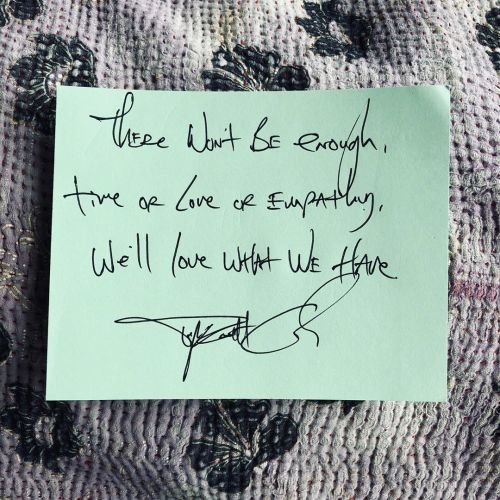 There Won't Be enough,
time or Love or Empathy,
We'll love What We Have